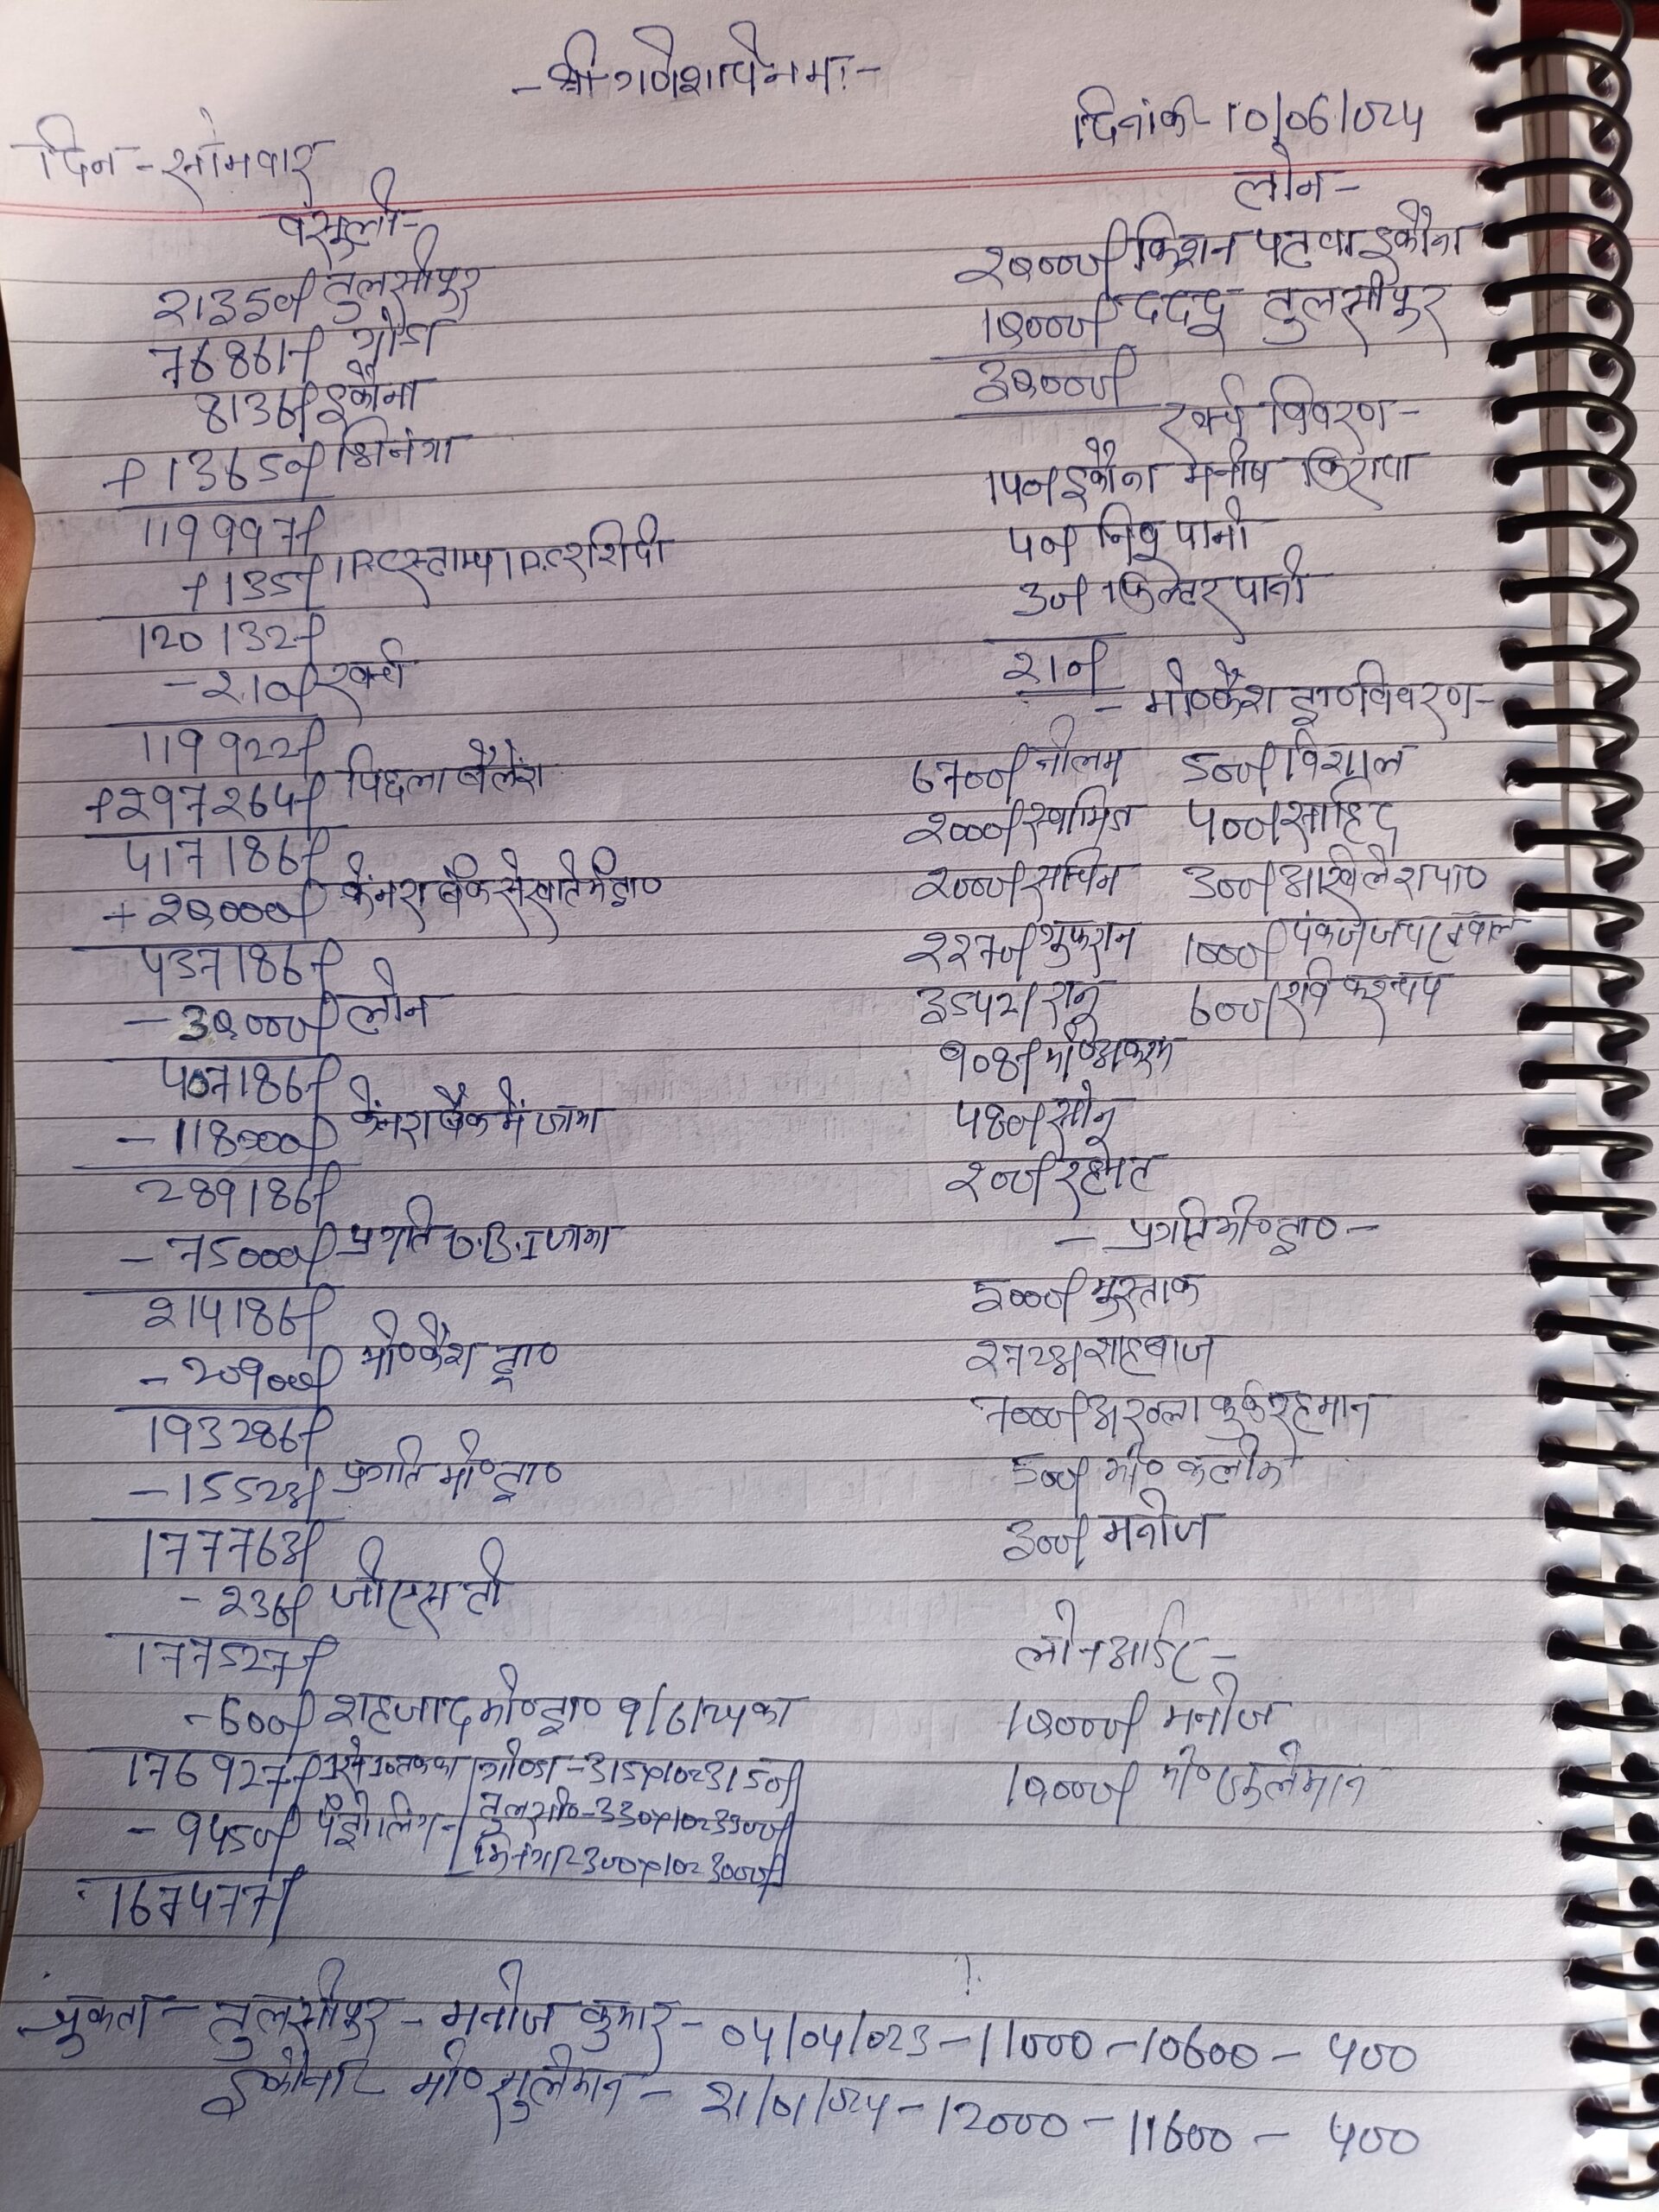 -श्री गणेशाये नमः-
दिन - सोमवार
दिनांक- 10/06/024
वसुली-
21350/ तुलसीपुर
76861/ गोंडा
8136/ इकौना
+13650/ भिनगा
119997/
+135/ 1 R.C स्ताम्प 1 R.C रशिदी
120132/
-210/ खर्चा
119922/
+297264/ पिछला बैलेंश
417186/
+20,000/ केनरा बैंक से खाते में ड्रा०
437186/
-30,000/ लोन
407186/
-118000/ केनरा बैंक में जमा
289186/
-75000/ प्रगति C.B.I जमा
214186/
-20900/ मो०कैश ड्रा०
193286/
-15523/ प्रगति मो०ड्रा०
177763/
-236/ जीएसटी
177527/
-600/ शहजाद मो०ड्रा० 9/6/24 का
176927/ 1 से 10 तक का गोण्डा-315×10=3150/
-9450/ पैट्रोलिंग- तुलसी०-330×10=3300/
भिनगा=300×10=3000/
167477/
लोन-
20,000/ किशन पटवा इकौना
10,000/ दददू तुलसीपुर
30,000/
खर्च विवरण-
140/ इकौना मनीष किराया
40/ निबु पानी
30/ फिल्टर पानी
210/
- मो०कैश ड्रा० विवरण-
6700/ नीलम 500/ विशाल
2000/ स्वामित्र 400/ साहिद
2000/ सचिन 300/ अखिलेश पा०
2270/ गुफरान 1000/ पंकज जयसवाल
3542/ रानु 600/ रवि कश्यप
908/ मो०अकरम
480/ सोनू
200/ रहमत
- प्रगति मो०ड्रा०-
5000/ मुस्ताक
2723/ शाहबाज
7000/ अर०ला कुर्फ रहमान
500/ मो० कलीम
300/ मनोज
लोन आर्डर-
10,000/ मनोज
10,000/ मो०सुलेमान
चुकता - तुलसीपुर - मनोज कुमार - 04/04/023 - 11000 - 10600 - 400
इकौना= मो०सुलेमान - 21/01/024 - 12000 - 11600 - 400